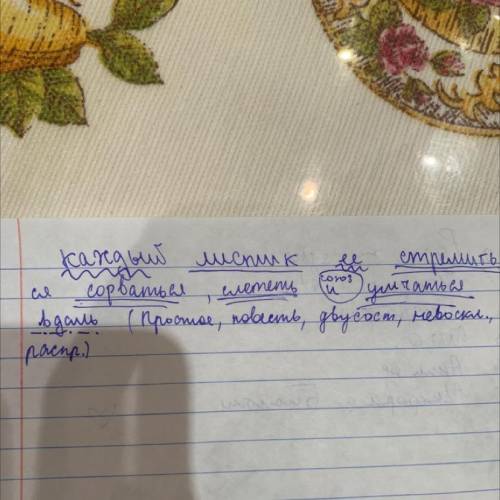 каждый листик ее стремить
ся сорваться, слететь союз и умчаться
вдаль (Простое, повеств, двусост, невоскл.,
распр.)